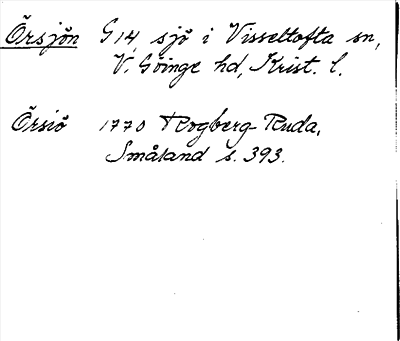 Örsjön G 14, sjö i Visseltofta sn,
V. Göinge hd, Krist. l.
Örsiö 1770 Rogberg-Ruda,
Småland s. 393.